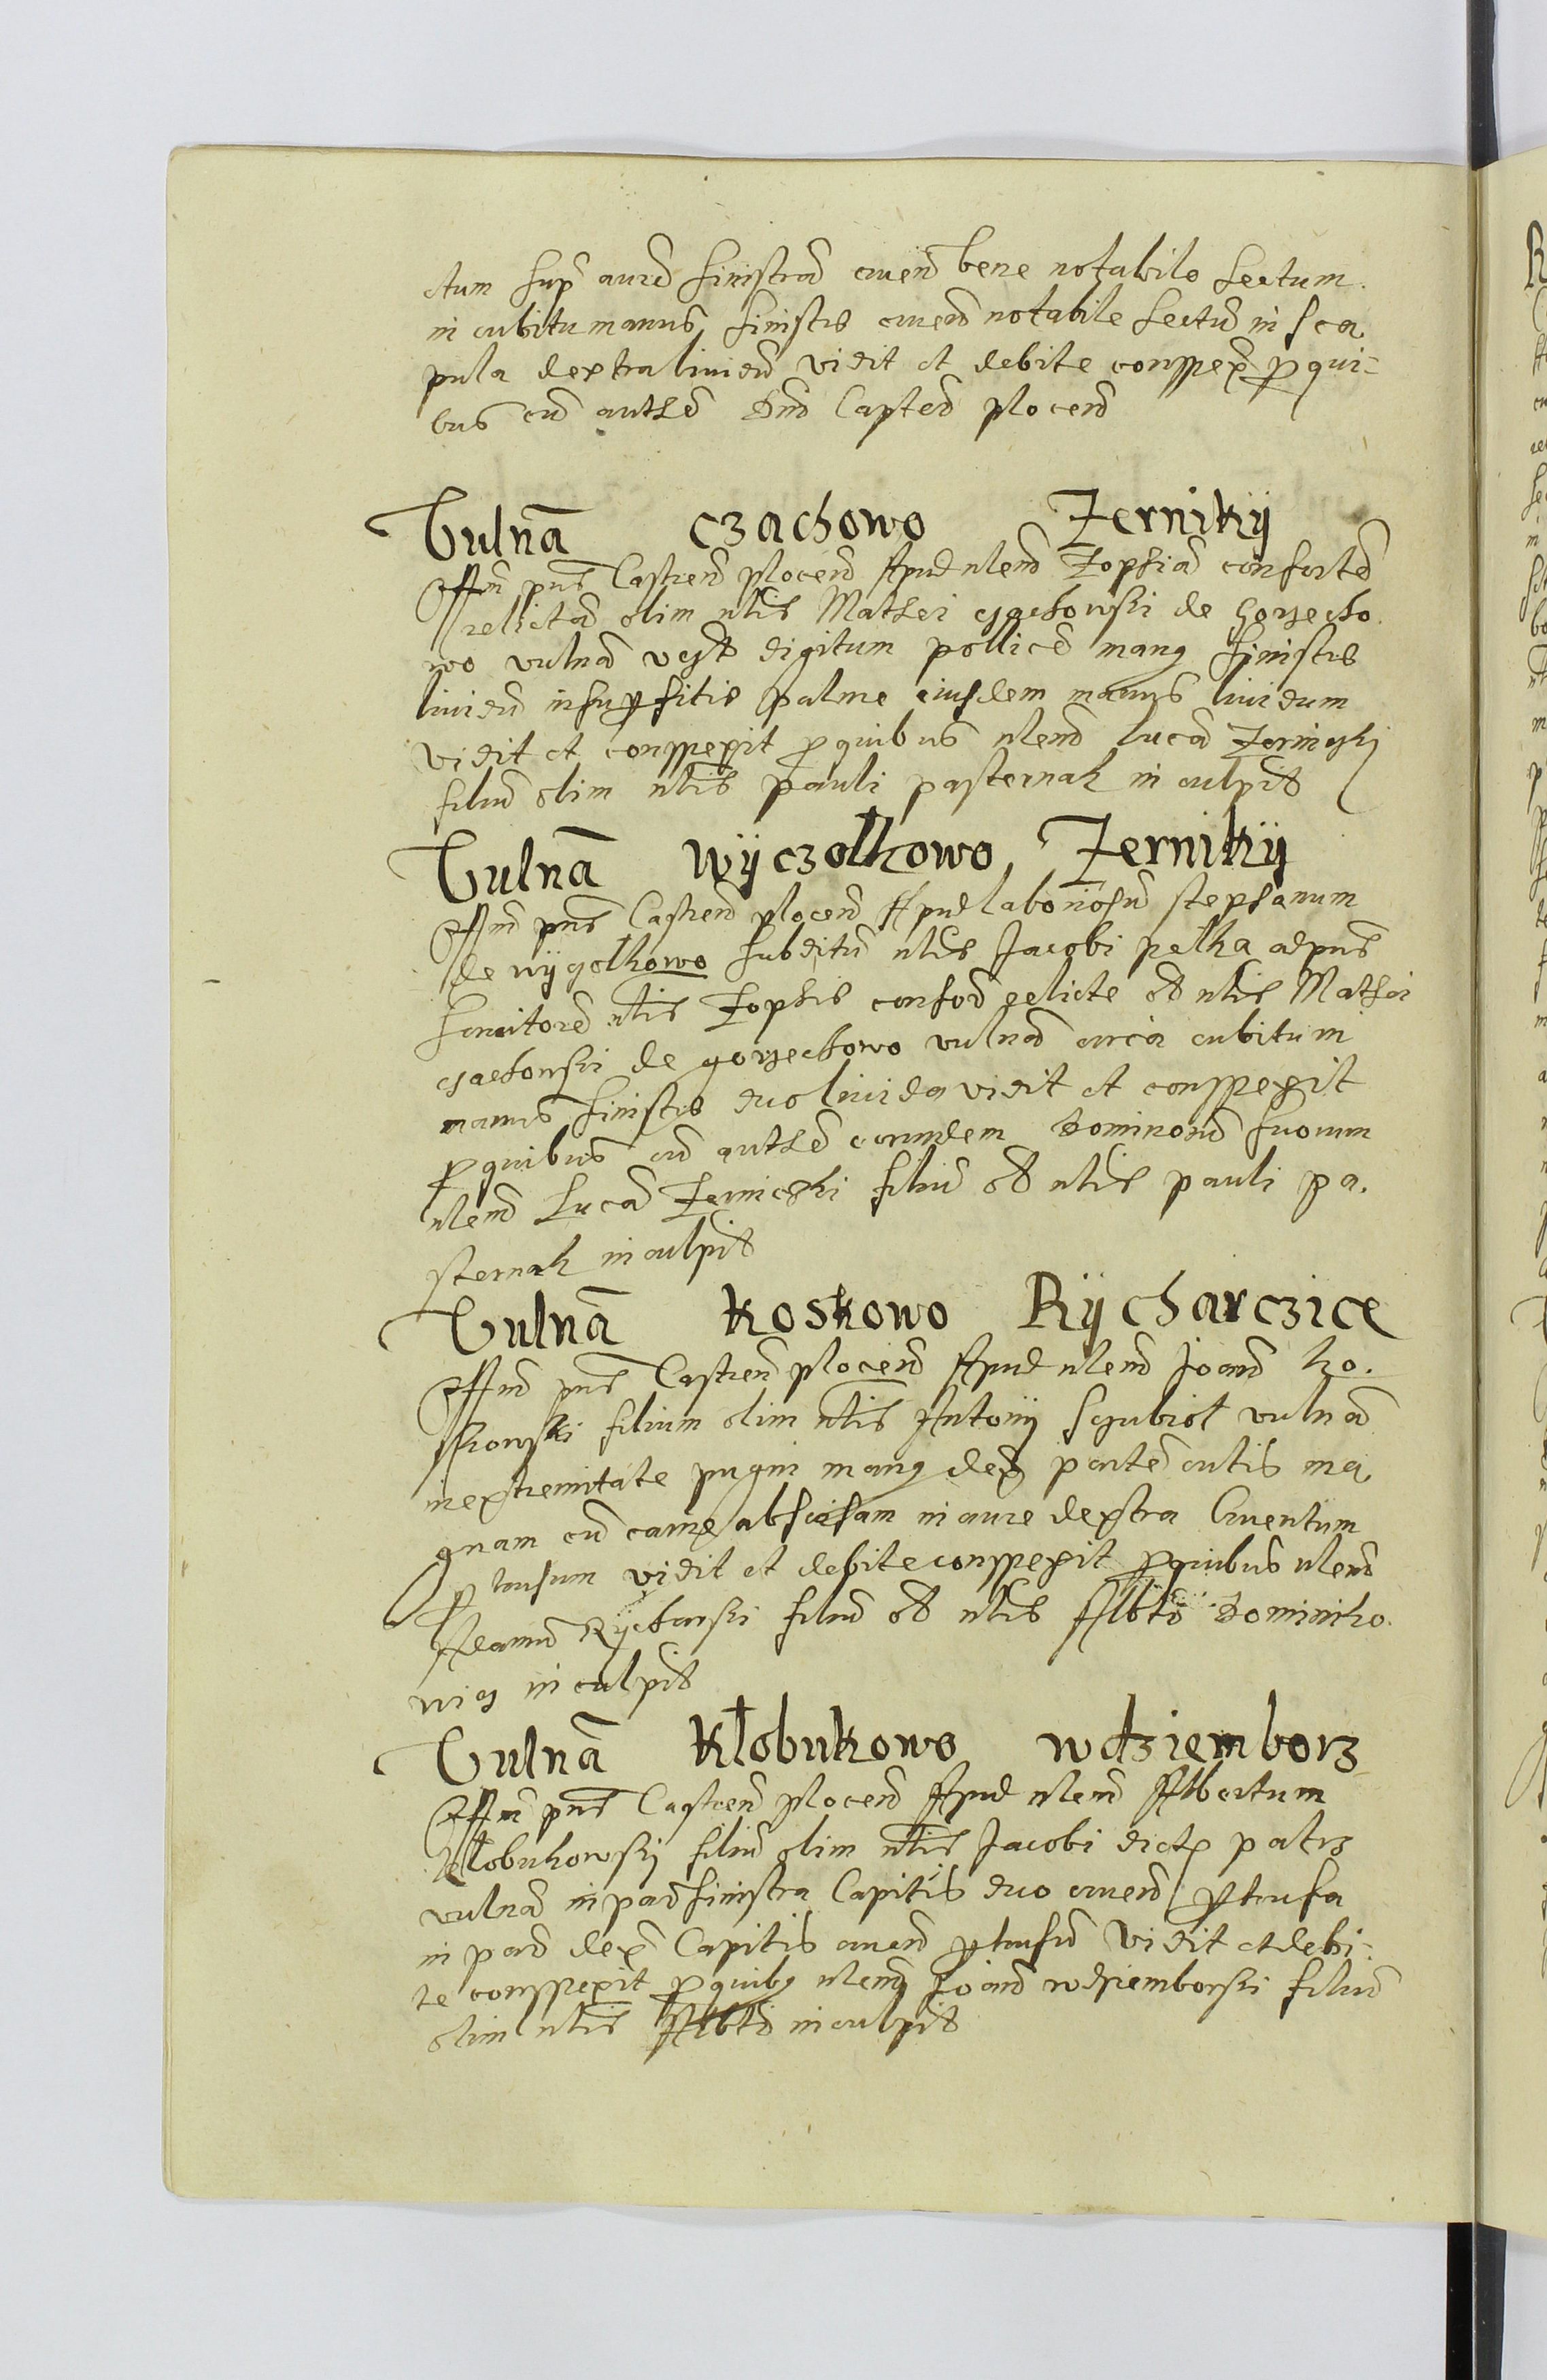 ctum sup aured sinistrad cruend bene notabile sectum
in cubitu manus sinistre cruend notabile sectu in sca
pula dextra lividu vidit et debite conspex pro qui-
bus cu authe Dnd Capted plocend
Vulna Czachowo Zernikÿ
Offm pns Castrend plocend Apud nlend Zophiad consorted
relictad olim nlis Mathei czachowski de Gorzecho
wo vulnad digitum pollice man9 sinistre
lividu in superficie palme eiusdem manus lividum
vidit et conspexit pro quibus nlend Lucad Zerniczki
filiu olim nlis pauli pasternak inculpat
Vulna Wÿczolkowo Zernikÿ
Offm pns Castrend plocend Apud laboriosu stephanum
de wÿczolkowo subditu nlis Jacobi pelka ad pns
servitore nlis Zophie consord relicte od nlis Mathei
czachowski de gorzechowo vulnad circa cubitum
manus sinistre duo livida vidit et conspexit
pro quibus cu authe eorundem Dominord suorum
nlend Lucad Zerniczki filiu od nlis pauli pa
sternak inculpat
Vulna Koskowo Rÿcharczice
Offm pns Castrend plocend Apud nlend Joand ko
skowski filium olim nlis Antonij vulnad
in extremitate pugni man9 dex parte cutis ma
gnam cu carne abscisam in aure dextra Cruentum
pertusum vidit et debite conspexit pro quibus nlend
Adamu Rÿcharski filiu od nlis Albti Dominiko
wicz inculpat
Vulna Kłobukowo wdziemborz
Offm pns Castrend plocend Apud nlend Albertum
klobukowskij filiu olim nlis Jacobi dict
vulnad in par sinistra Capitis duo cruend pertusa
in par dex Capitis cruend pertusu vidit et debi-
te conspexit pro quib9 nlend Joand wdziemborski filiu
olim nlis Albti inculpat